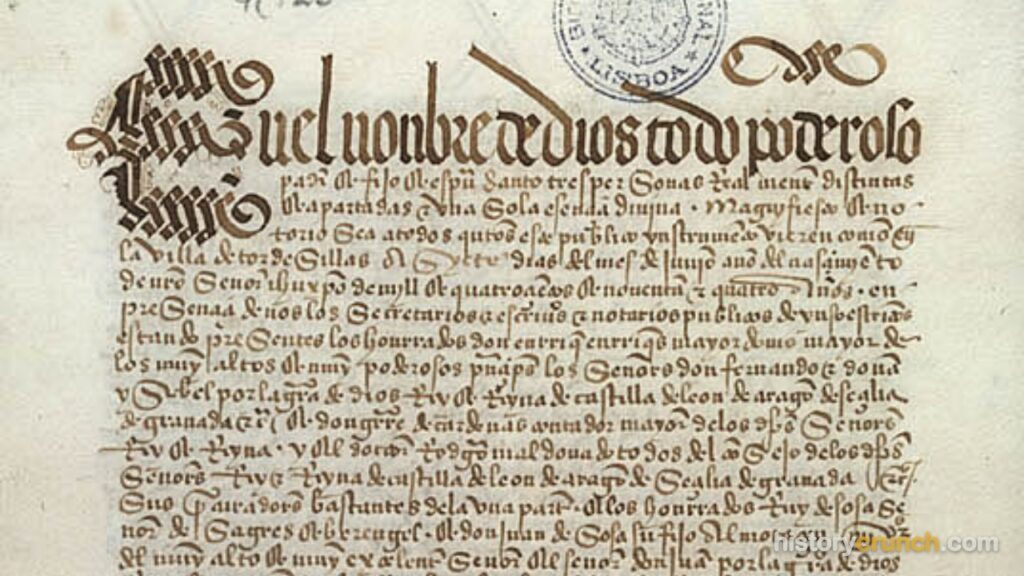 LISBOA
En el nonbre de dios todo poderoso
padre & fijo & espu santo tres personas Realmente distintas
& apartadas & una sola esencia divina. Magnifiesto & no-
torio sea a todos quantos este publico ynstrumento vieren como En
la villa de tordesillas A syete dias del mes de junio año del nasçimiento
de nro Señor ihu xpo de mill & quatroçientos & noventa & quatro Años. en
presençia de nos los Secretarios & escrivanos & notarios publicos de yuso escriptos
estando presentes los honrrados don enrrique enrriques mayordomo mayor de
los muy altos & muy poderosos prinçipes los Señores don fernando & doña
ysabel por la graçia de dios Rey & Reyna de castilla de leon de aragon de seçilia
de granada & & don gutierre de cardenas contador mayor de los dichos Señores
Rey & Reyna. y el doctor Rodrigo maldonado todos del consejo de los dichos
Señores Rey & Reyna de castilla de leon de aragon de Seçilia de granada
sus procuradores bastantes de la una parte. & los honrrados Ruy de sosa Se
ñor de Sagres & berengel. & don juan de Sosa su fijo Almotaçen
del muy alto & muy exçelente Señor el señor don juan por la graçia de dios
historycrunch.com